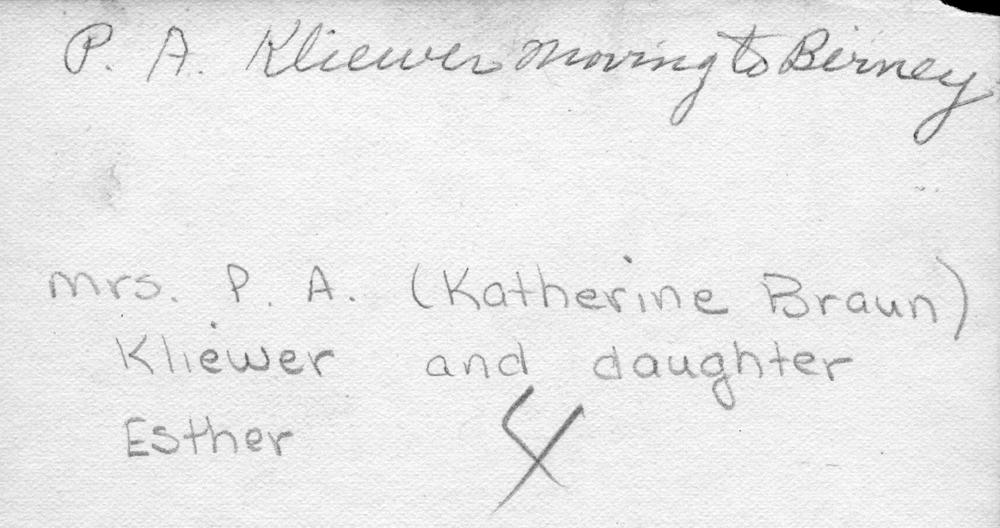 P. A. Kliewer moving to Birney
Mrs. P. A. (Katherine Braun)
Kliewer and daughter
Esther
4